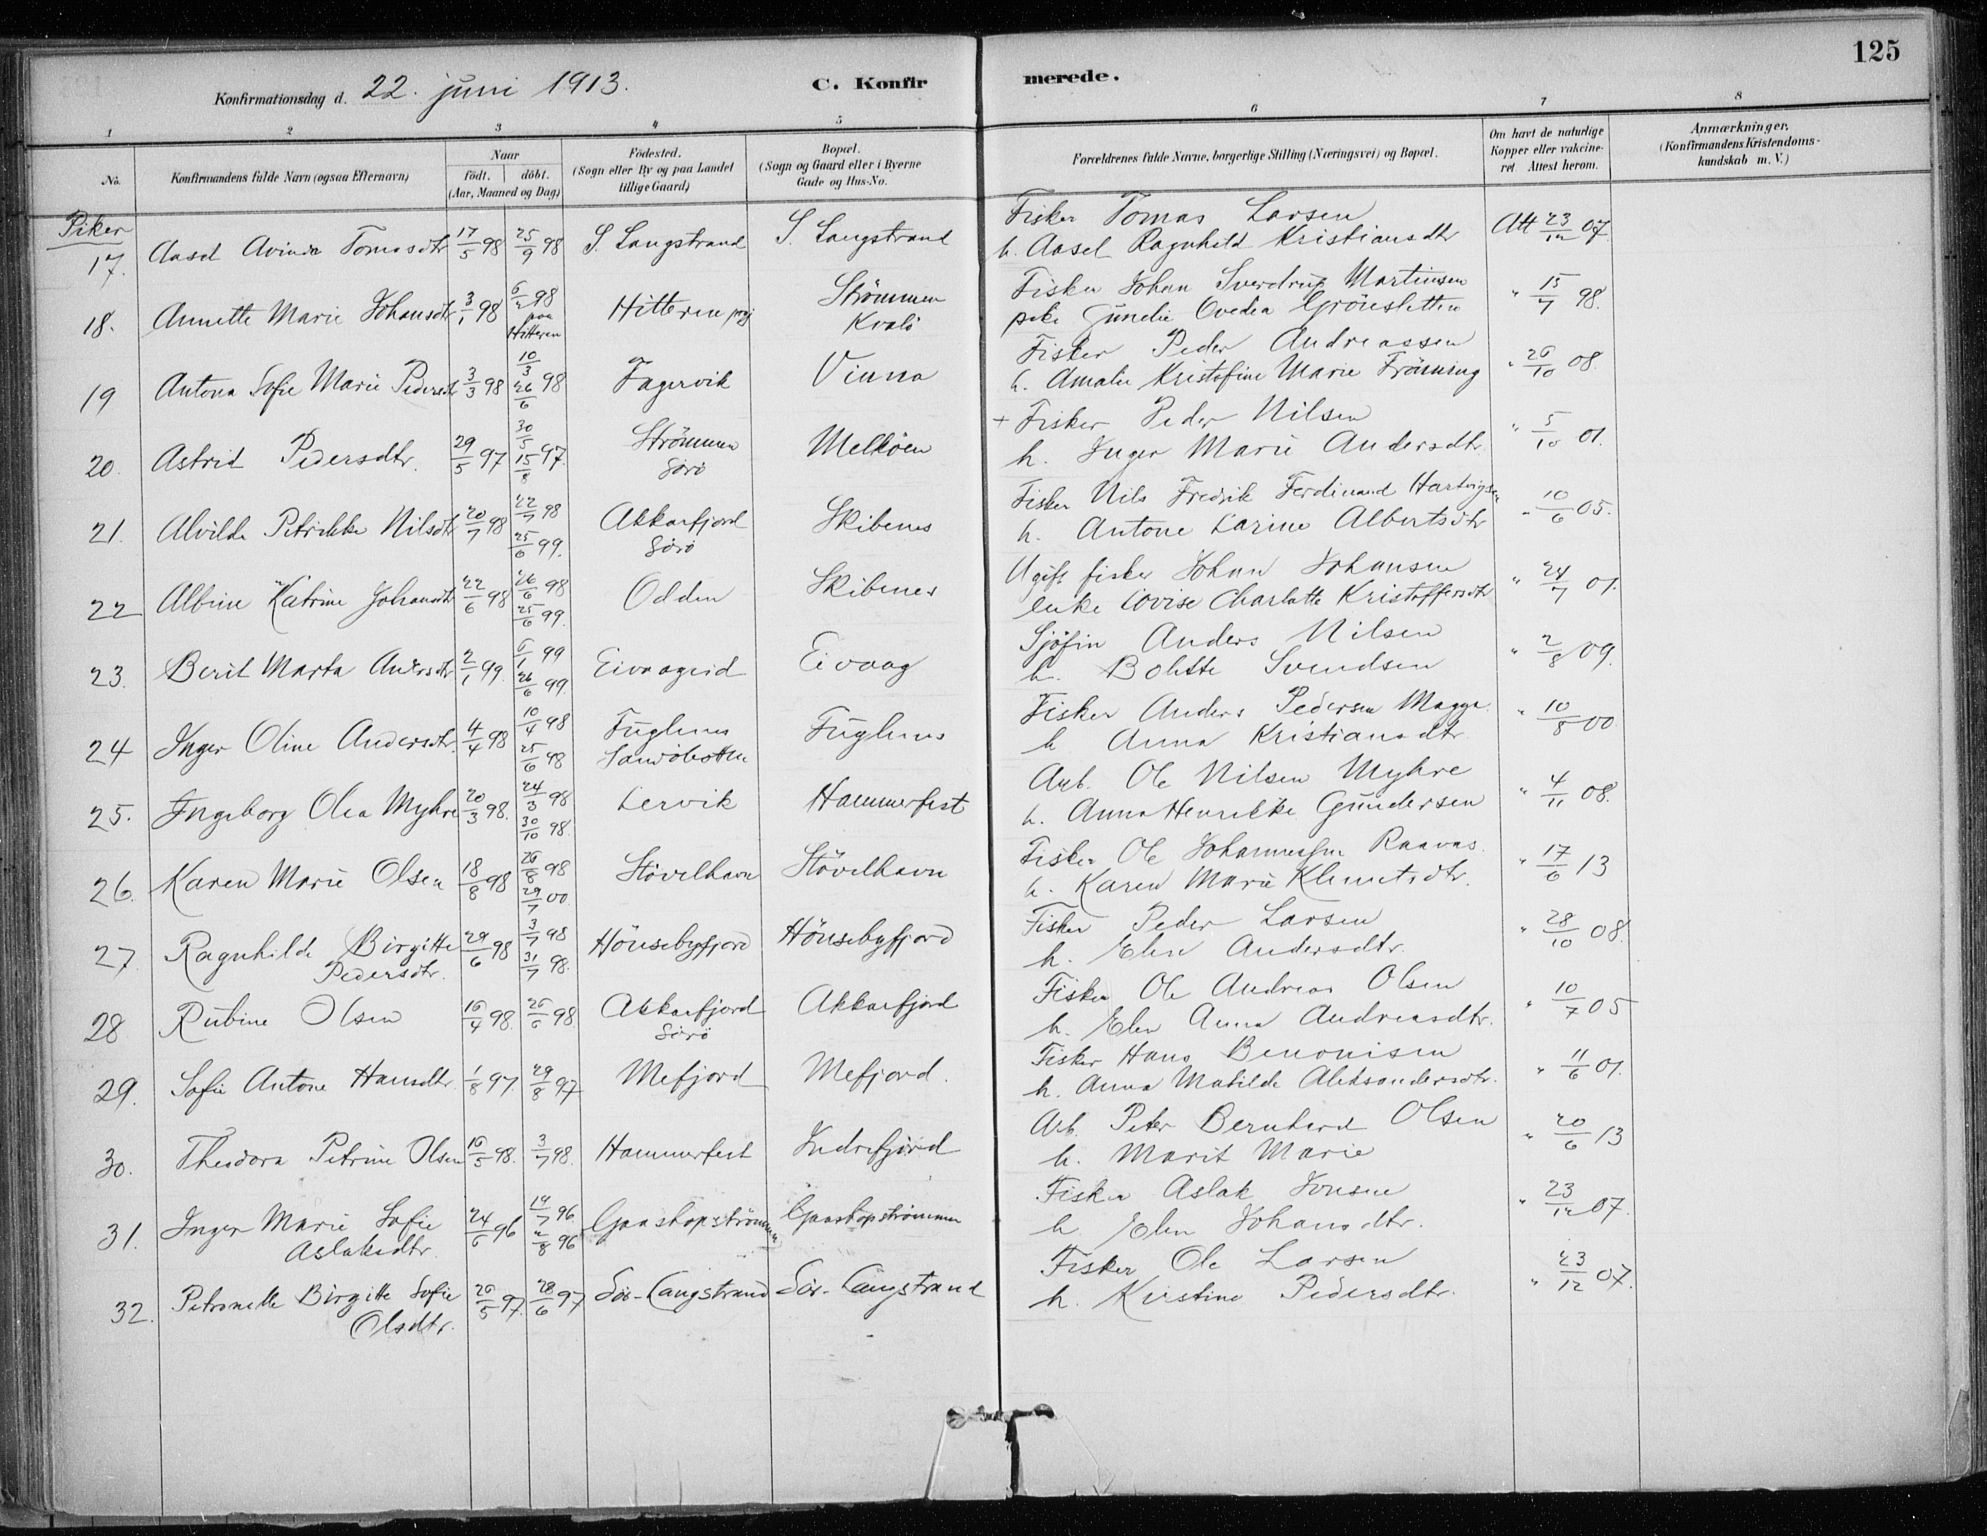 125
Konfirmationsdag d. 22. juni 1913. C. Konfirmerede.
1 2 3 4 5 6 7 8
No. Konfirmandens fulde Navn (ogsaa Efternavn) Naar født. døbt. (Aar, Maaned og Dag) Fødested. (Sogn eller By og paa Landet tillige Gaard) Bopæl. (Sogn og Gaard eller i Byerne Gade og Hus-No. Forældrenes fulde Navne, borgerlige Stilling (Næringsvei) og Bopæl. Om havt de naturlige Kopper eller vakcineret Attest herom. Anmærkninger. (Konfirmandens Kristendomskundskab m. V.)
Piker
17. Aasel Avinda Tomasdtr 17/5 98 25/9 98 S. Langstrand S. Langstrand Fisker Tomas Larsen
h. Aasel Ragnhild Kristiansdtr Att 23/12 07
18. Annette Marie Johansdtr 3/1 98 98 paa Hitteren Hitteren prgj Strömmen Kvalö Fisker Johan Sverdrup Martinsen
pike Ovedia Grönsletten " 15/7 98.
19 Antona Sofie Marie Pedersdtr 3/3 98 10/3 26/6 98 Fagervik Vinna Fisker Peder Andreassen
h. Amalie Kristofine Marie Frönning " 26/10 08.
20. Astrid Pedersdtr. 29/5 97 30/5 15/8 97. Strömmen Sörö Melköen + Fisker Peder Nilsen
h. Inger Marie Andersdtr. " 5/10 01.
21. Alvilde Petrikke Nilsdtr 20/7 98 22/7 98 25/6 99. Akkarfjord Sörö Skibenes Fisker Nils Fredrik Ferdinand Hartvigsen
h. Antone Larine Albertsdtr " 10/6 05.
22 Albine Katrine Johansdtr 22/6 98 26/6 98 25/6 99. Odden Skibenes Ugift fisker Johan Johansen
enke Lovise Charlotte Kristoffersdtr " 24/7 01.
23. Berit Marta Andersdtr 2/1 99. 6/1 99 26/6 99 Eivaageid Eivaag Sjöfin Anders Nilsen
h. Bolette Svendsen " 2/8 09.
24 Inger Oline Andersdtr. 4/4 98 10/4 98 25/6 98 Fuglenes Fuglenes Fisker Anders Pedersen Magga
h Anna Kristiansdtr. " 10/8 00
25. Ingeborg Olea Myhre 20/3 98. 24/3 98 30/10 98. Lervik Hammerfest Arb. Ole Nilsen Myhre
h. Anna Henrikke Gundersen " 4/11 08.
26. Karen Marie Olsen 18/8 98 26/8 98 29/7 00 Stövelhavn Stövelhavn Fisker Ole Johannessen Raavas.
h. Karen Marie Klemetsdtr. " 17/6 13
27. Ragnhilde Birgitte Pedersdtr. 29/6 98 3/7 98 31/7 98. Hönsebyfjord Hönsebyfjord Fisker Peder Larsen
h. Elen Andersdtr. " 28/10 08.
28. Rubine Olsen 16/4 98. 26/6 98. Akkarfjord Sörö Akkarfjord Fisker Ole Andreas Olsen
h. Elen Anna Andreasdtr. " 10/7 05
29. Sofie Antone Hansdtr. 1/8 97. 29/8 97 Mefjord Mefjord. Fisker Hans Benonisen
h. Anna Matilde Aleksandersdtr. " 11/6 01.
30. Theodora Petrine Olsen 16/5 98. 3/7 98. Hammerfest Indrefjord Arb. Peter Bernhard Olsen
h. Marit Marie " 20/6 13
31. Inger Marie Sofie Aslaksdtr. 24/6 96 19/7 96 2/8 96 Gaashopströmmen Gaashopströmmen Fisker Aslak Jonsen
h. Elen Johansdtr. " 23/12 07.
32. Petronelle Birgitte Sofie Olsdtr. 26/5 97. 28/6 97 Sör-Langstrand Sör-Langstrand Fisker Ole Larsen
h. Kirstine Pedersdtr. " 23/12 07.